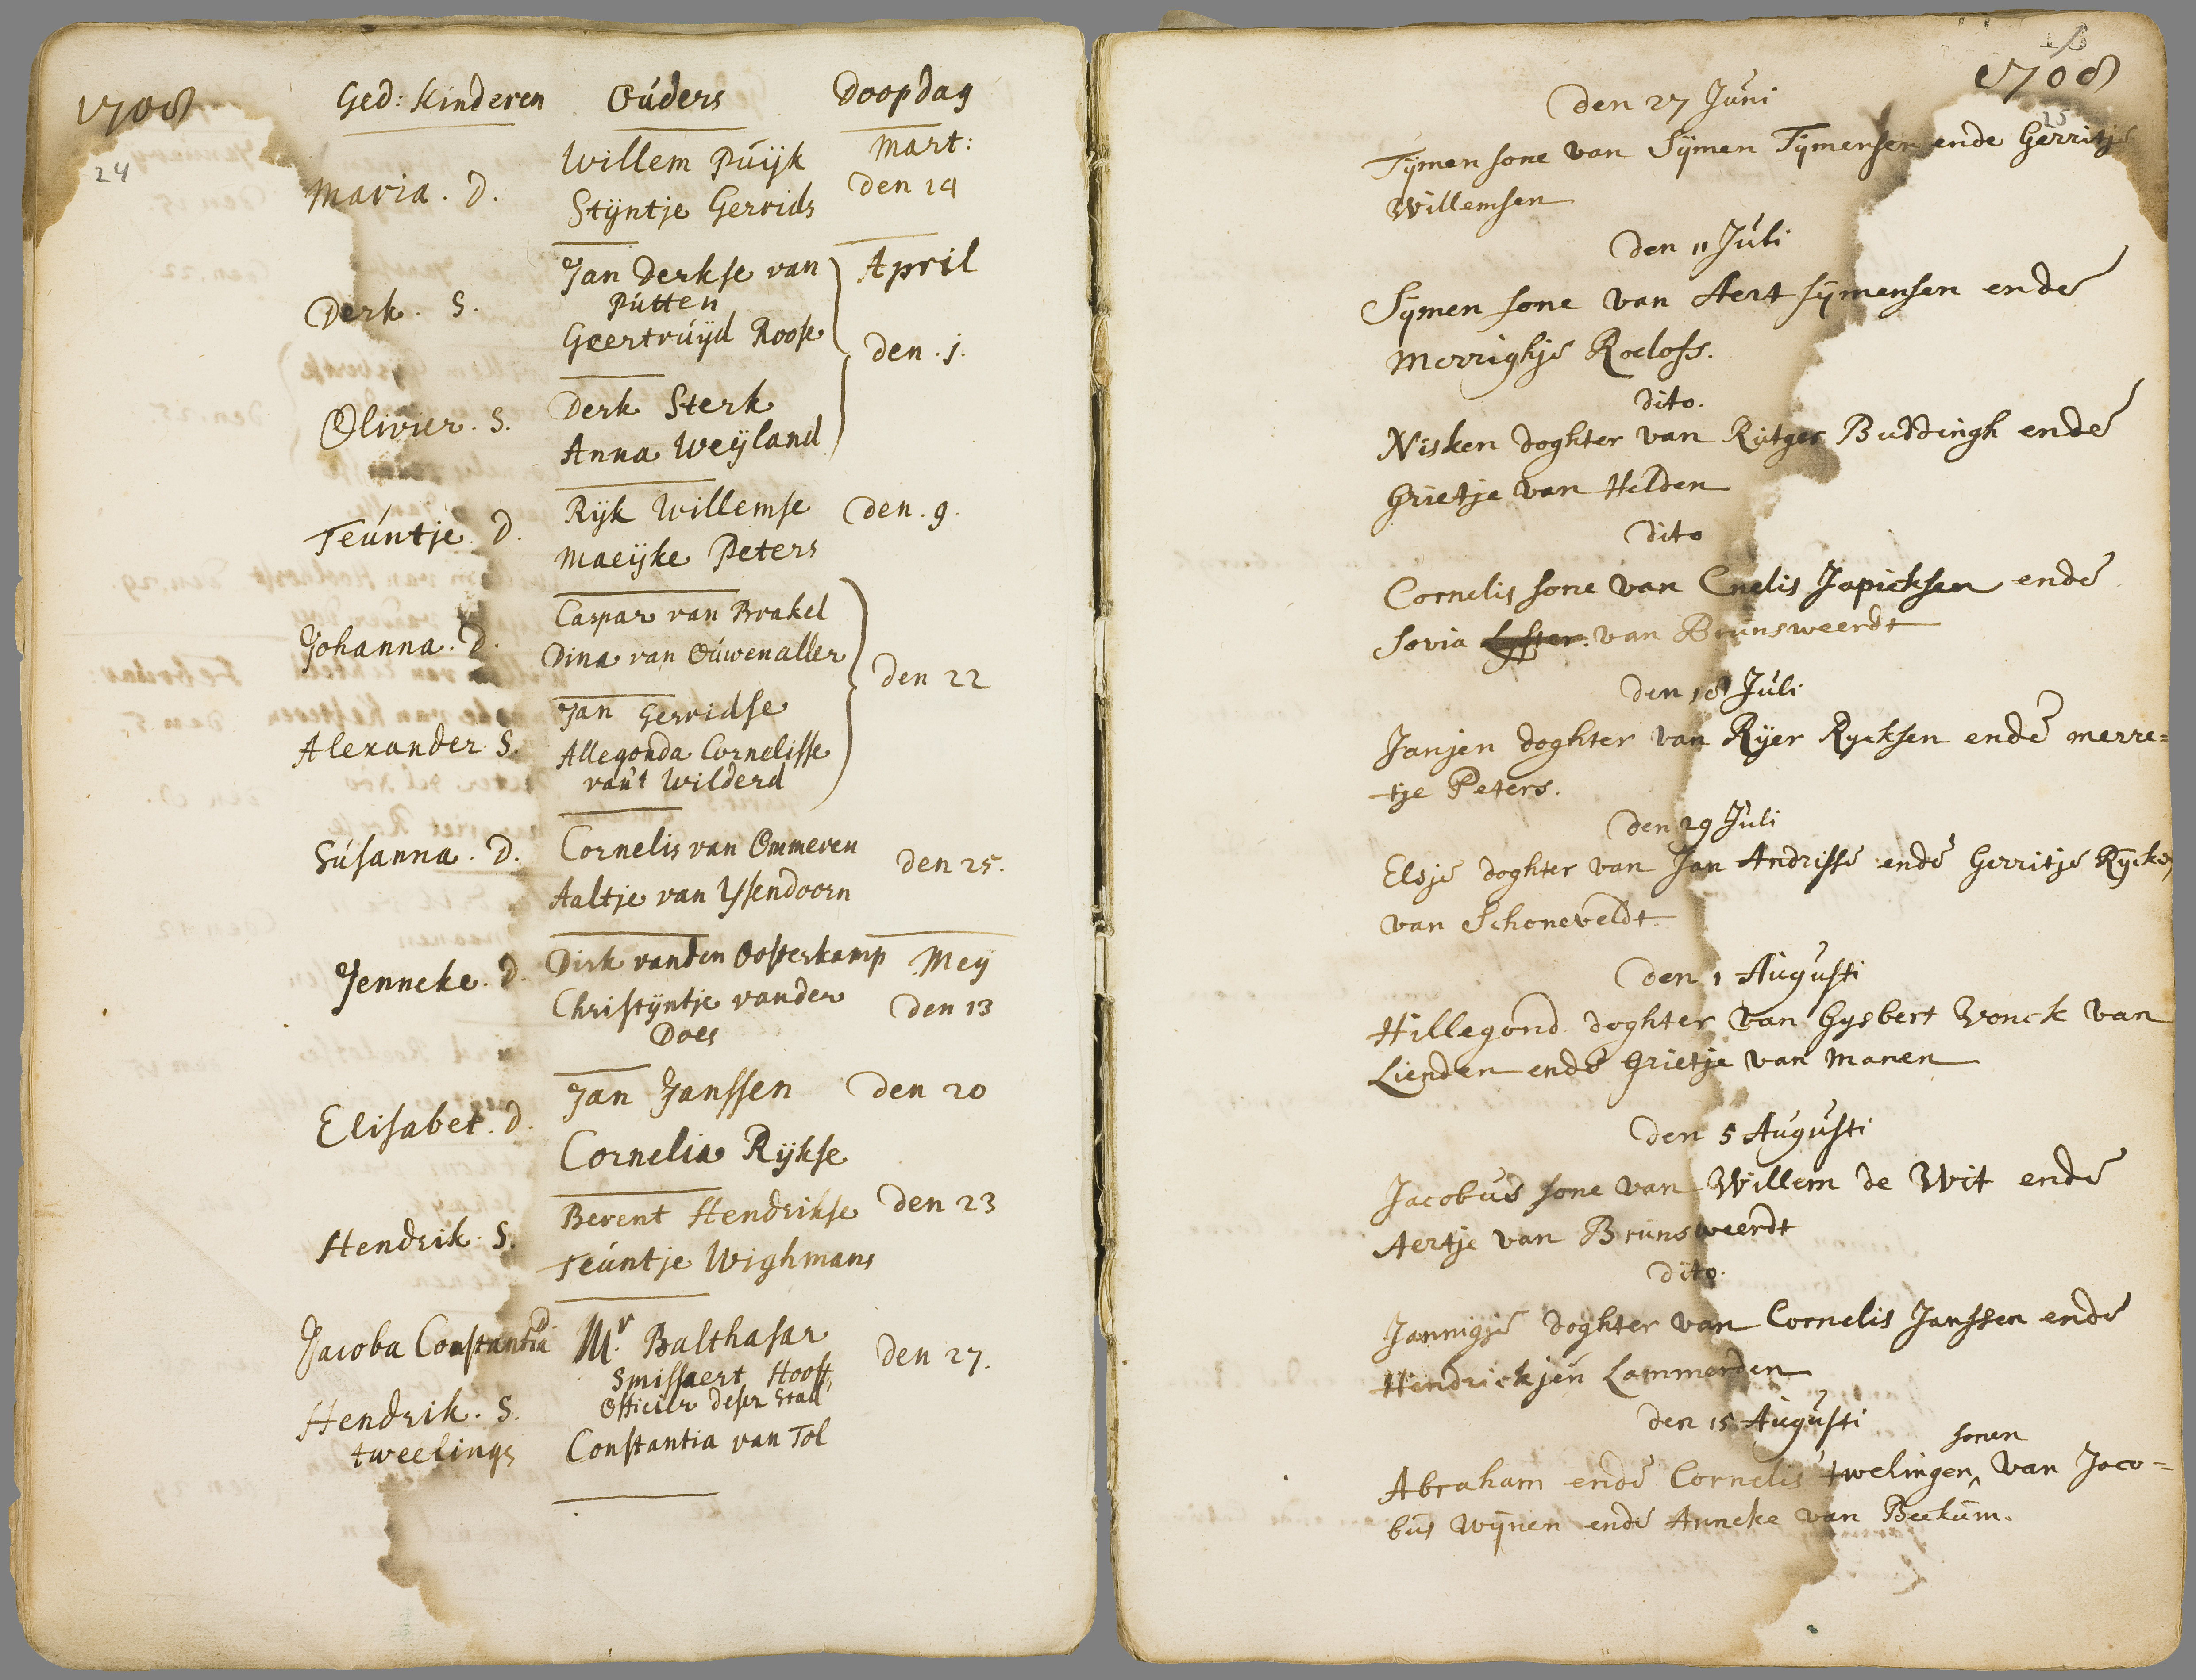 1708
24
Ged: Kinderen Oúders Doopdag
Willem Púijk Mart:
Maria. D. Stijntje Gerrids den 14
Jan Derkse van April
Pútten
Derk. S. Geertruijd Roose den. 1.
Olivier. S. Derk Sterk
Anna Weijland
Teúntje. D. Rijk Willemse Den. 9.
Maeijke Peters
Johanna. D. Caspar van Brakel
Dina van Oúwenaller den 22
Jan Gerridse
Alexander. S. Allegonda Cornelisse
van't Wilderd
Súsanna. D. Cornelis van Ommeren den 25.
Aaltje van Ysendoorn
Jenneke. D. Dirk vanden Oosterkamp Meij
Christijntje vander den 13
Does
Elisabet. D. Jan Janssen den 20
Cornelia Rijkse
Hendrik. S. Berent Hendrikse den 23
Teúntje Wighmans
Jacoba Constantia D Mr. Balthasar
Smissaert Hooft den 27.
Hendrik. S. Officier deser Stad
tweelings Constantia van Tol
1708
25
Den 27 Júni
Tijmen sone van Sijmen Tijmensen ende Gerritje
Willemsen
Den 11 Júli
Sijmen sone van Aert Sijmensen ende
Merrighje Roelofs.
Dito.
Nisken doghter van Rútger Buddingh ende
Grietje van Helden
Dito
Cornelis sone van Cnelis Japicksen ende
Sovia van Brúnsweerdt
Den 18 Júli
Janjen doghter van Rijer Rycksen ende merre=
tje Peters.
Den 29 Júli
Elsje doghter van Jan Andrisse ende Gerritje Rijcke,
van Schoneveldt
Den 1 Augústi
Hillegond doghter van Gysbert Vonck van
Lienden ende Grietje van Manen
Den 5 Augústi
Jacobús sone van Willem de Wit ende
Aertje van Brúnsweerdt
Dito.
Jannigje doghter van Cornelis Janssen ende
Hendrickjen Lammerden
Den 15 Augústi
sonen
Abraham ende Cornelis twelingen ^ van Jaco=
bús Wijnen ende Anneke van Beekúm.